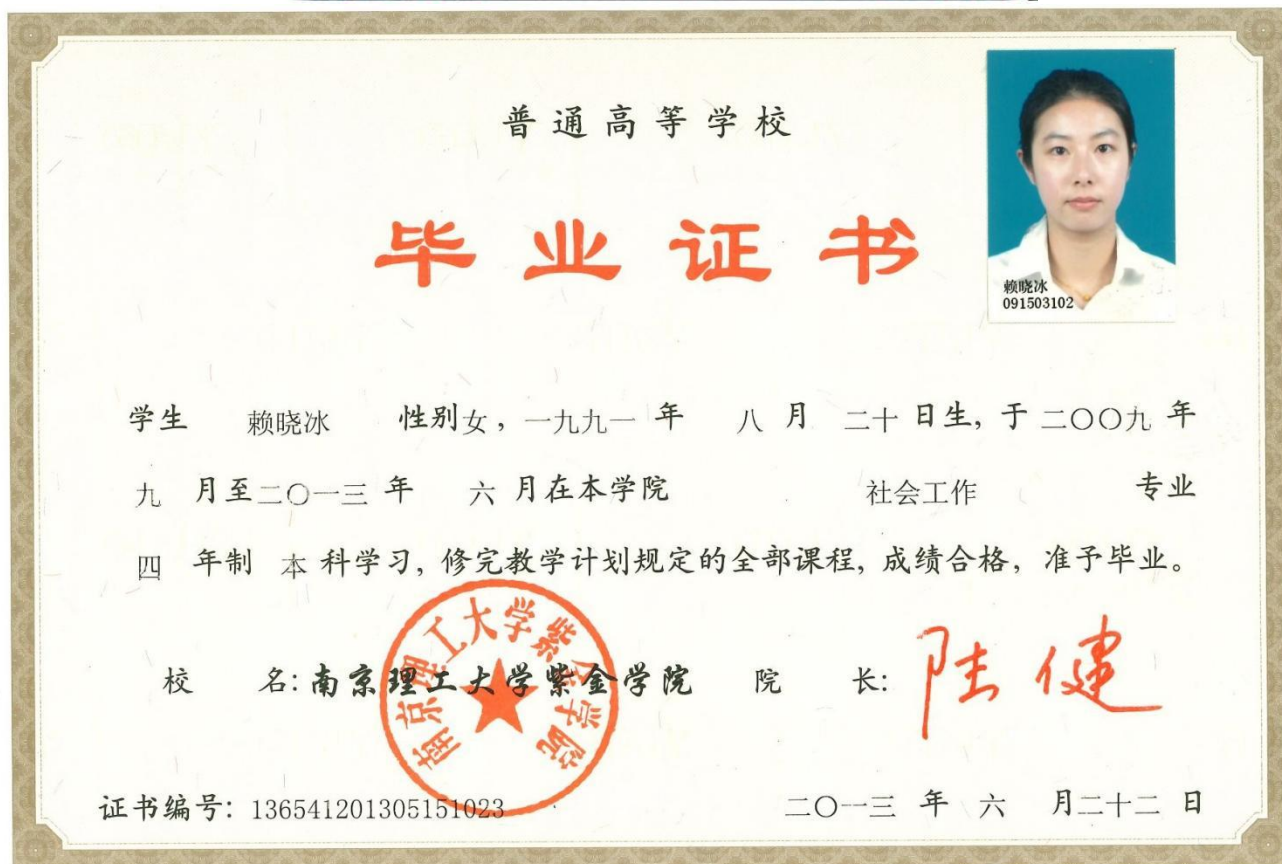 普通高等学校
毕业证书
赖晓冰
091503102
学生 赖晓冰 性别女，一九九一年 八月 二十日生，于二〇〇九年
九 月至二〇一三年 六月在本学院 社会工作 专业
四 年制 本科学习，修完教学计划规定的全部课程，成绩合格，准予毕业。
南京理工大学紫金学院
校 名：南京理工大学紫金学院 院 长：陆健
证书编号：136541201305151023 二〇一三 年 六 月二十二日